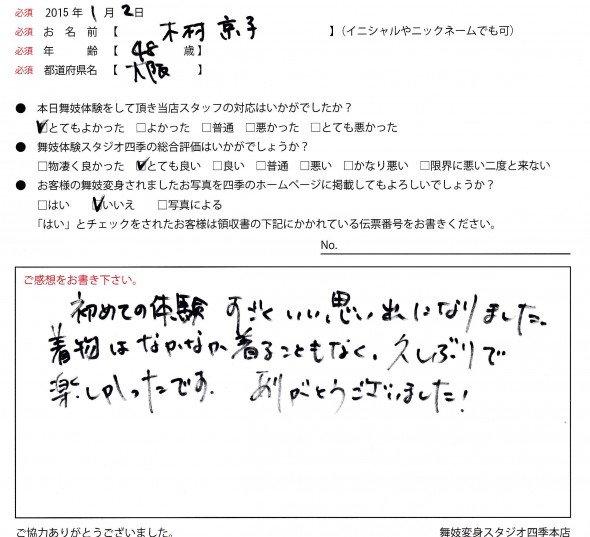 必須 2015年 1月 2日
必須 お 名 前【 木村 京子 】(イニシャルやニックネームでも可)
必須 年 齢【 48 歳】
必須 都道府県名【 大阪 】
● 本日舞妓体験をして頂き当店スタッフの対応はいかがでしたか?
☑とてもよかった □よかった □普通 □悪かった □とても悪かった
● 舞妓体験スタジオ四季の総合評価はいかがでしょうか?
□物凄く良かった ☑とても良い □良い □普通 □悪い □かなり悪い □限界に悪い二度と来ない
● お客様の舞妓変身されましたお写真を四季のホームページに掲載してもよろしいでしょうか?
□はい ☑いいえ □写真による
「はい」とチェックをされたお客様は領収書の下記にかかれている伝票番号をお書きください。
No.
ご感想をお書き下さい。
初めての体験 すごくいい思い出になりました。
着物はなかなか着ることもなく、久しぶりで
楽しかったです. ありがとうございました!
ご協力ありがとうございました。 舞妓変身スタジオ四季本店